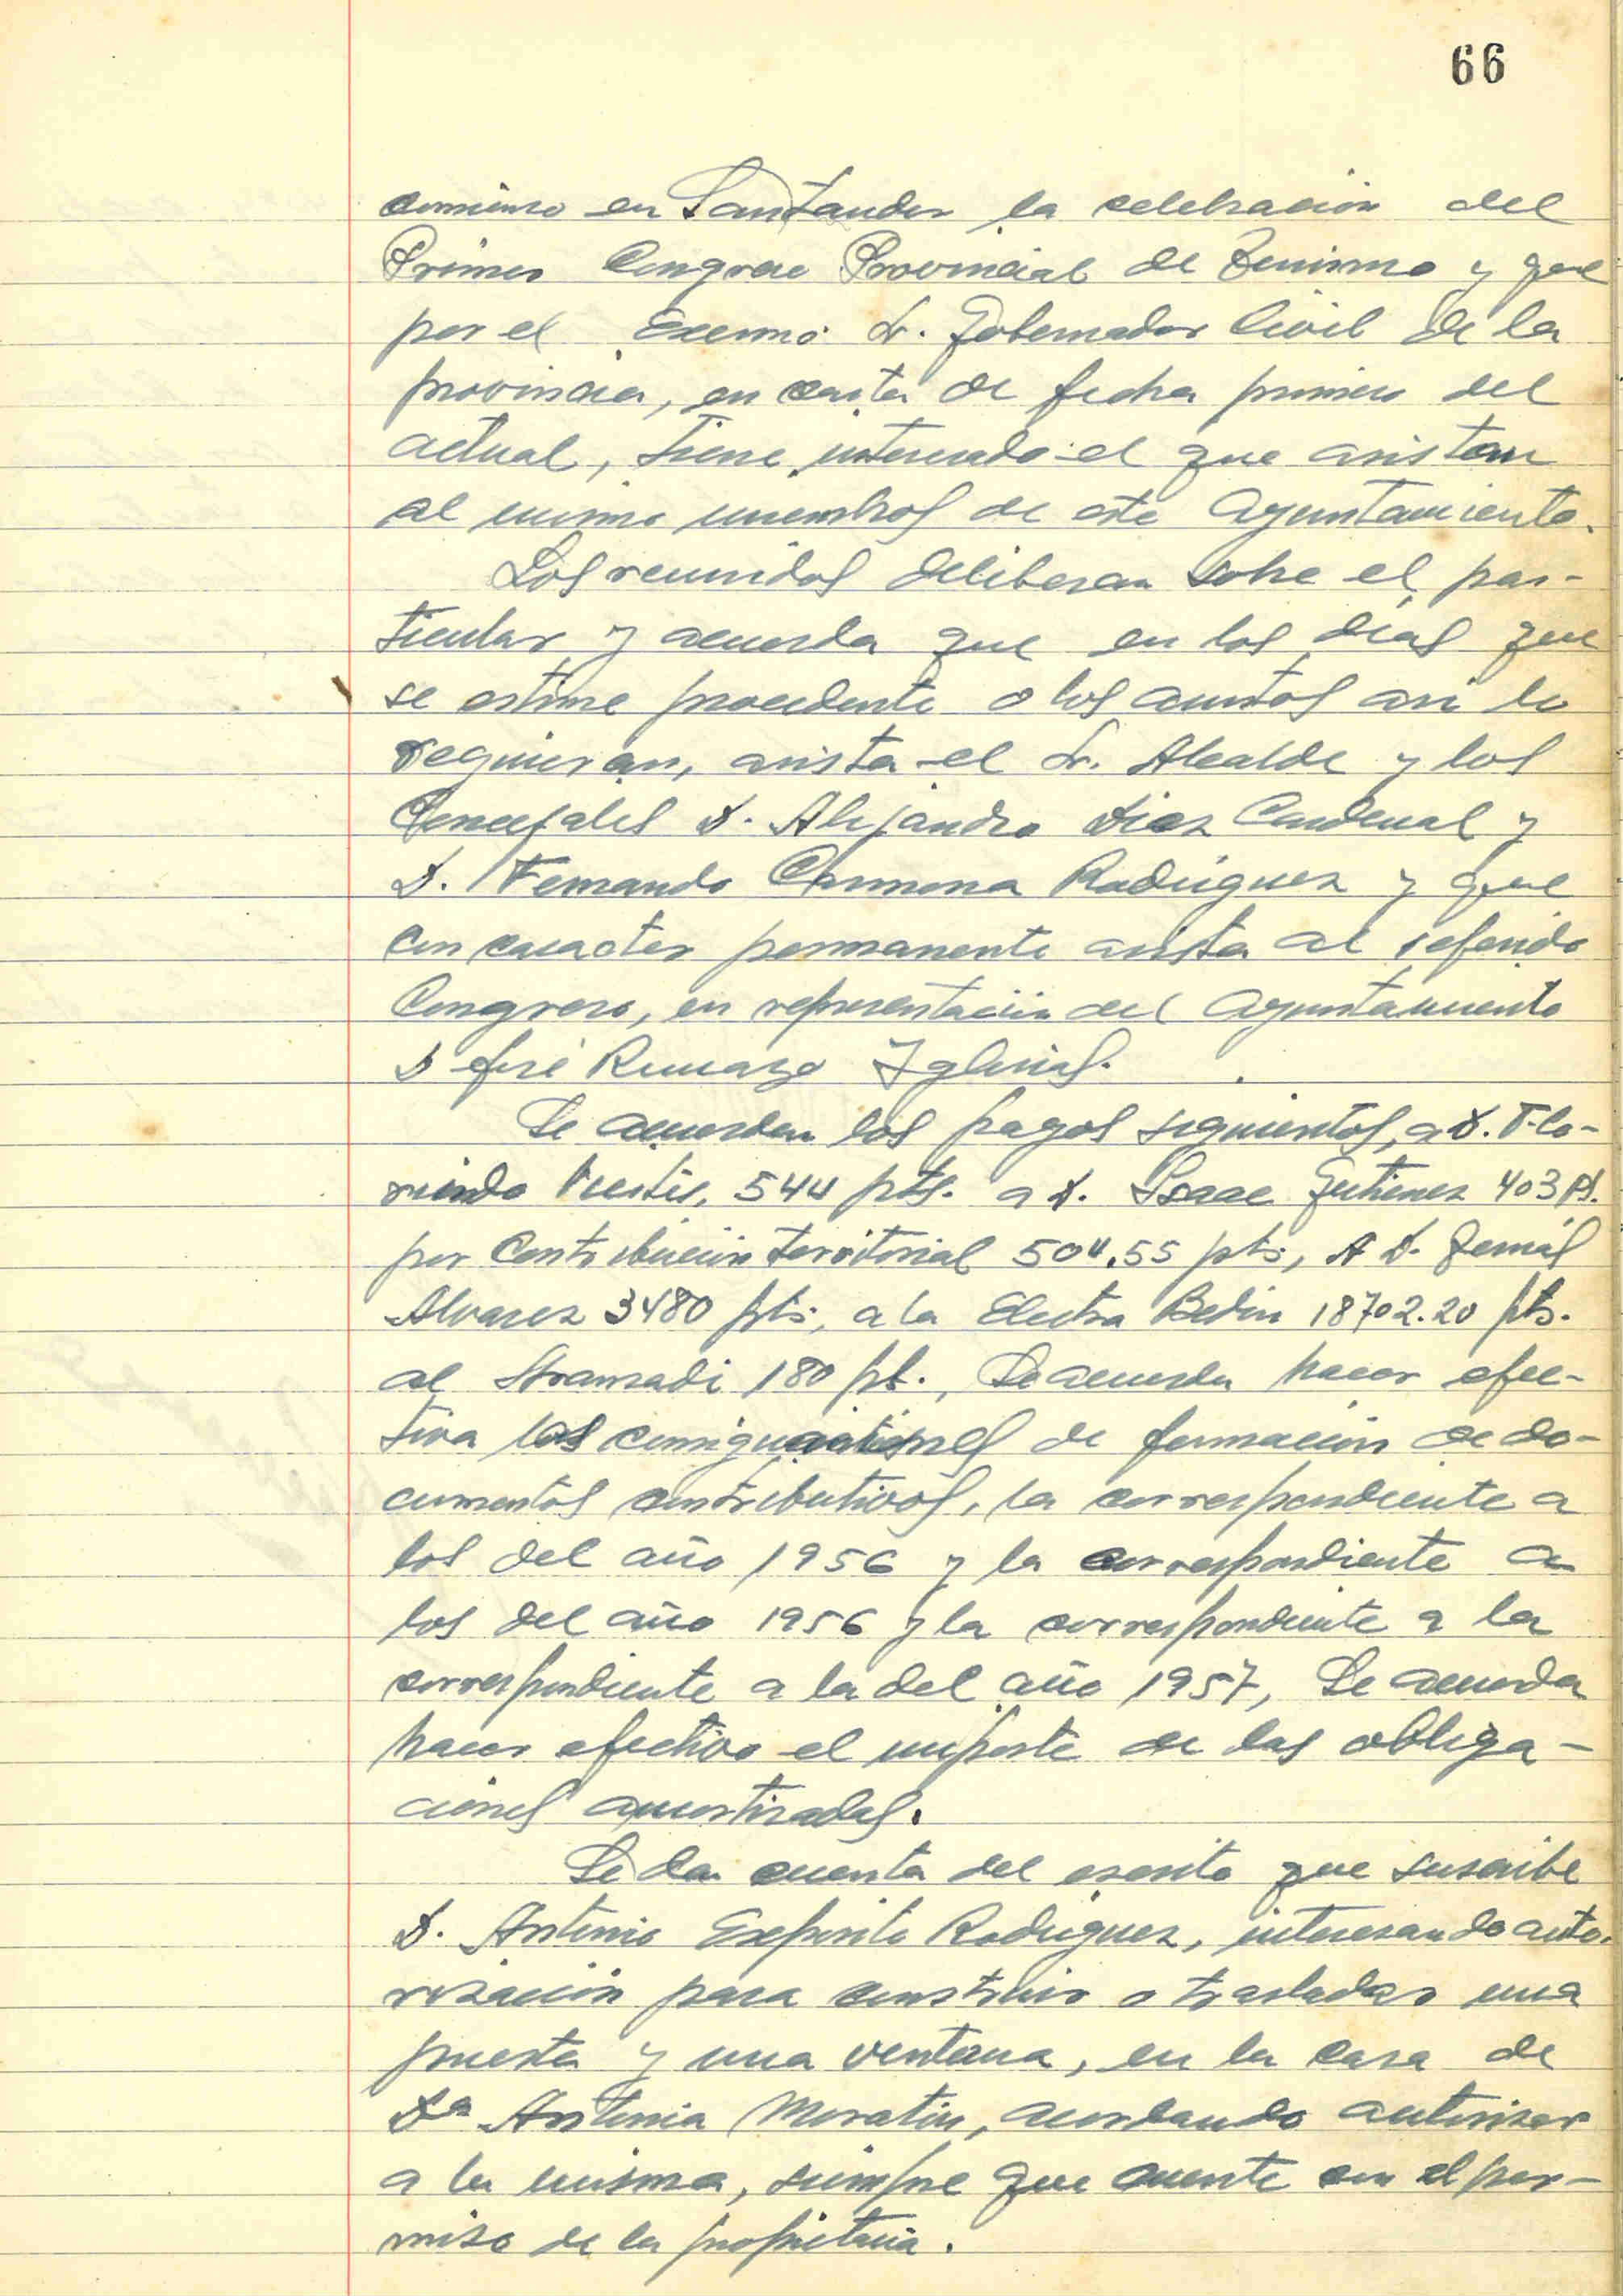 66
comienzo en Santander la celebración del
Primer Congreso Provincial de Turismo y que
por el Excmo. Sr. Gobernador Civil de la
provincia, en carta de fecha primero del
actual, tiene interesado el que asistan
al mismo miembros de este Ayuntamiento.
Los reunidos deliberan sobre el par-
ticular y acuerda que en los días que
se estime procedente o los asuntos asi lo
requieran, asista el Sr. Alcalde y los
Concejales D. Alejandro Diez Cardenal y
D. Fernando Carmona Rodriguez y que
con caracter permanente asista al referido
Congreso, en representación del Ayuntamiento
D José Rumazo Iglesias.
Se acuerdan los pagos siguientes, a D. Flo-
rindo 544 pts. a D. Isaac Gutierrez 403 pts.
por Contribución territorial 504.55 pts, A D. Jemás
Alvarez 3480 pts, a la Electra Bedón 18702.20 pts.
al 180 pt., Se acuerda hacer efec-
tiva las consignaciones de formación de do-
cumentos contributivos, la correspondiente a
los del año 1956 y la correspondiente a
los del año 1956 y la correspondiente a la
correspondiente a la del año 1957, Se acuerda
hacer efectivo el importe de las obliga-
ciones amortizadas.
Se da cuenta del escrito que suscribe
D. Antonio Exposito Rodriguez, interesando auto-
rización para construir o trasladar una
puerta y una ventana, en la casa de
Dª Antonia Moratin, acordando autorizar
a la misma, siempre que cuente con el per-
miso de la propietaria.